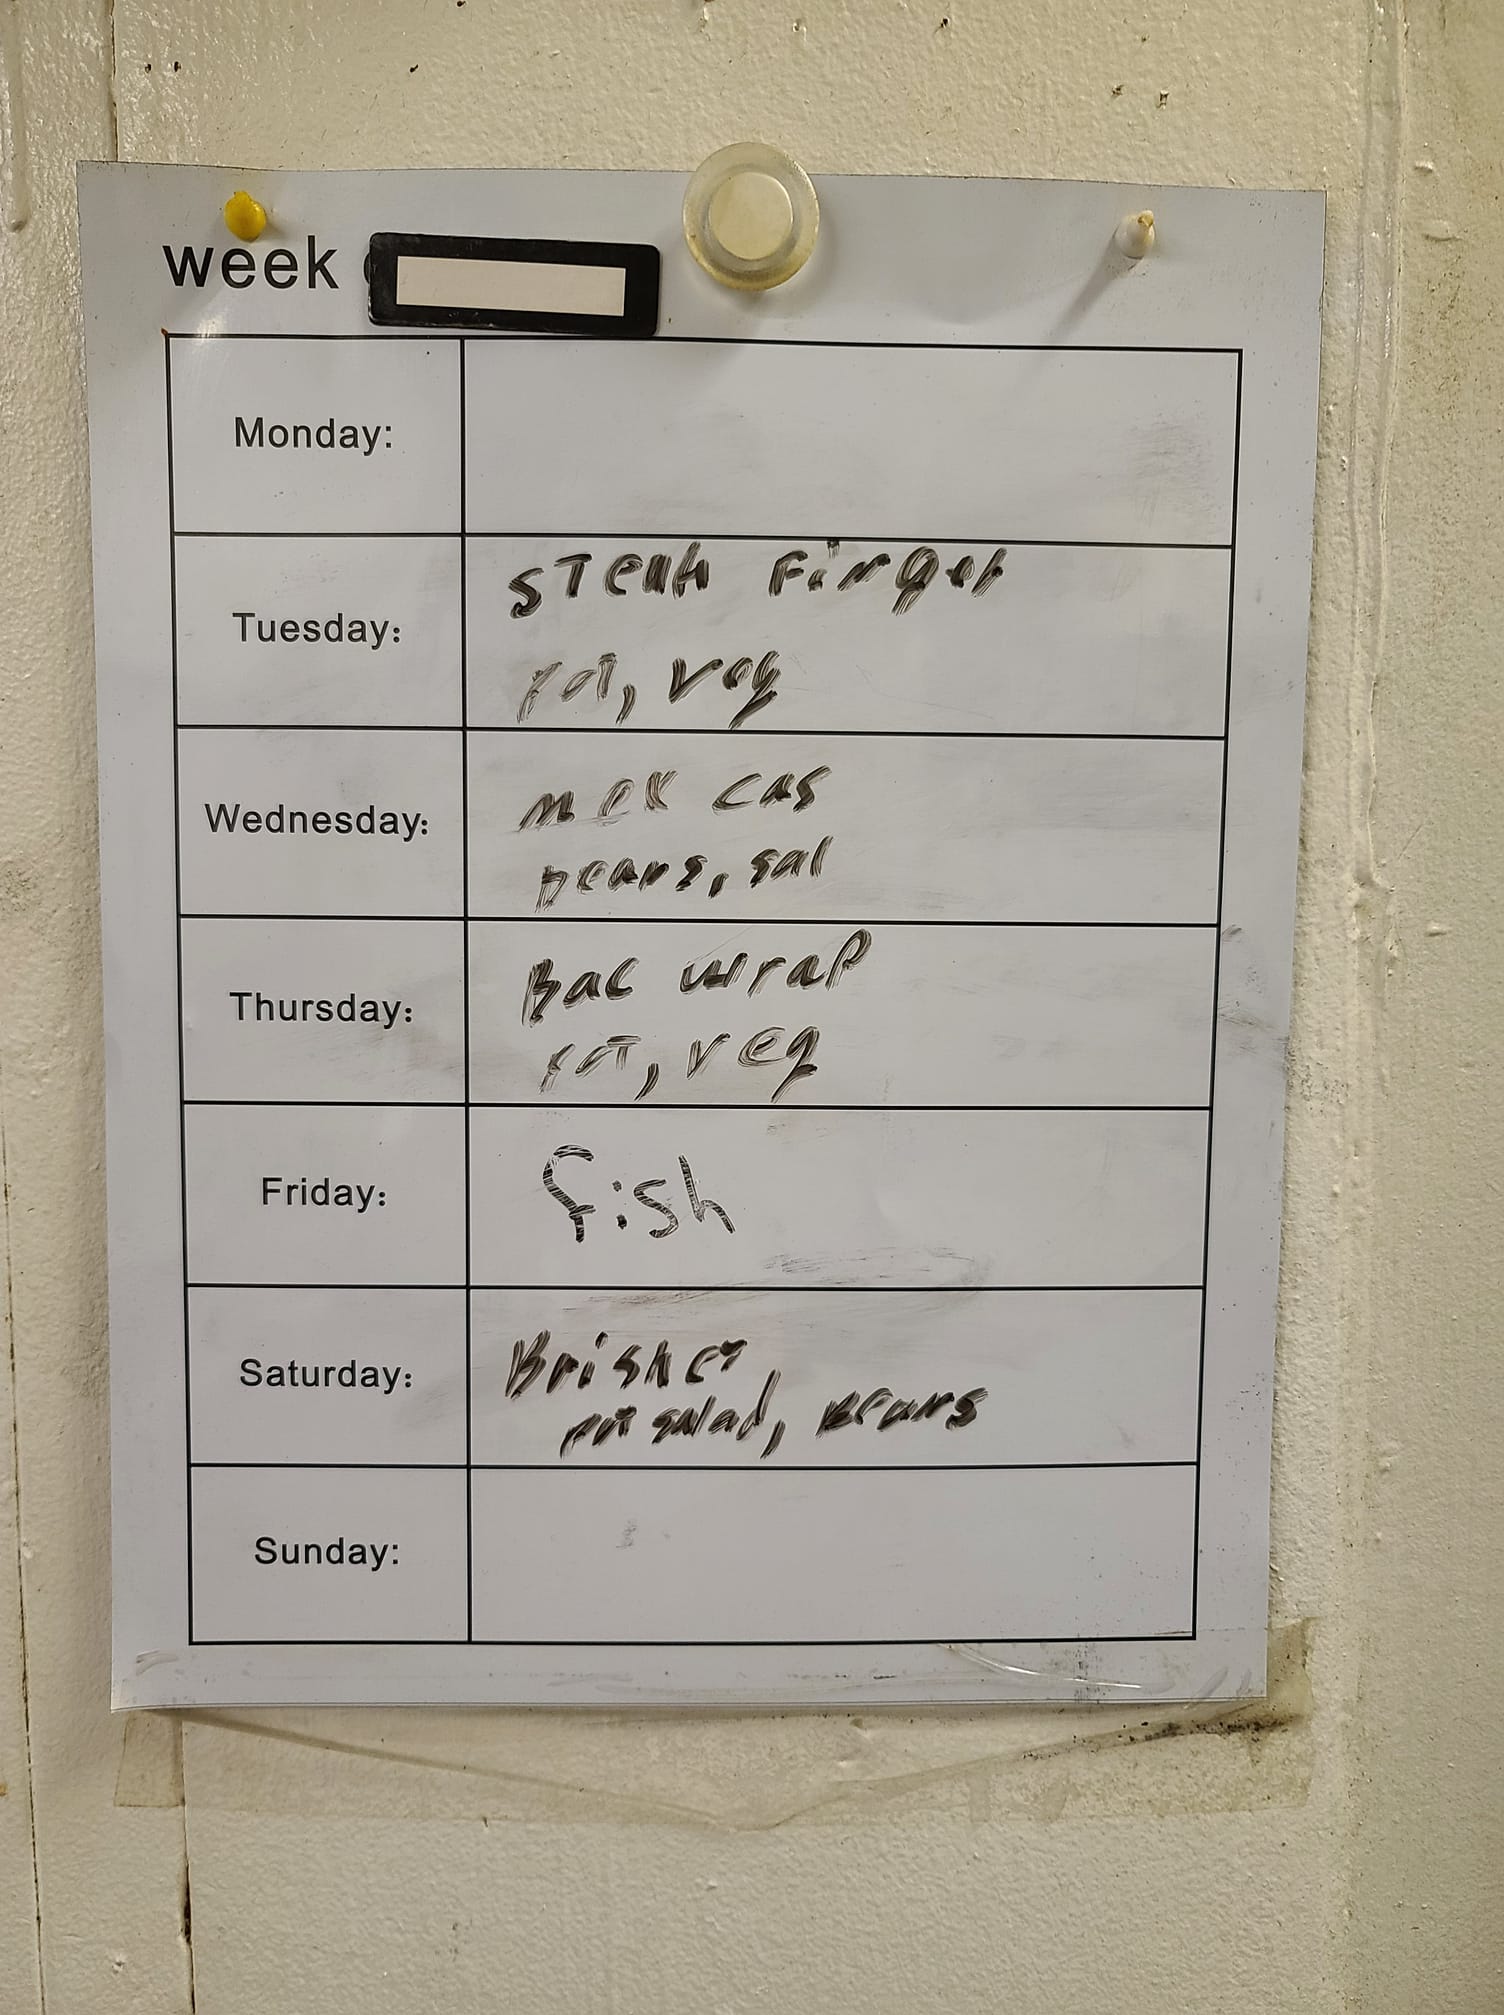 week
Monday:
Tuesday:
Steak Finger
Pot, veg
Wednesday:
mex cas
beans, sal
Thursday:
Bac wrap
Pot, veg
Friday:
fish
Saturday:
Brisket,
Pot salad, Beans
Sunday: